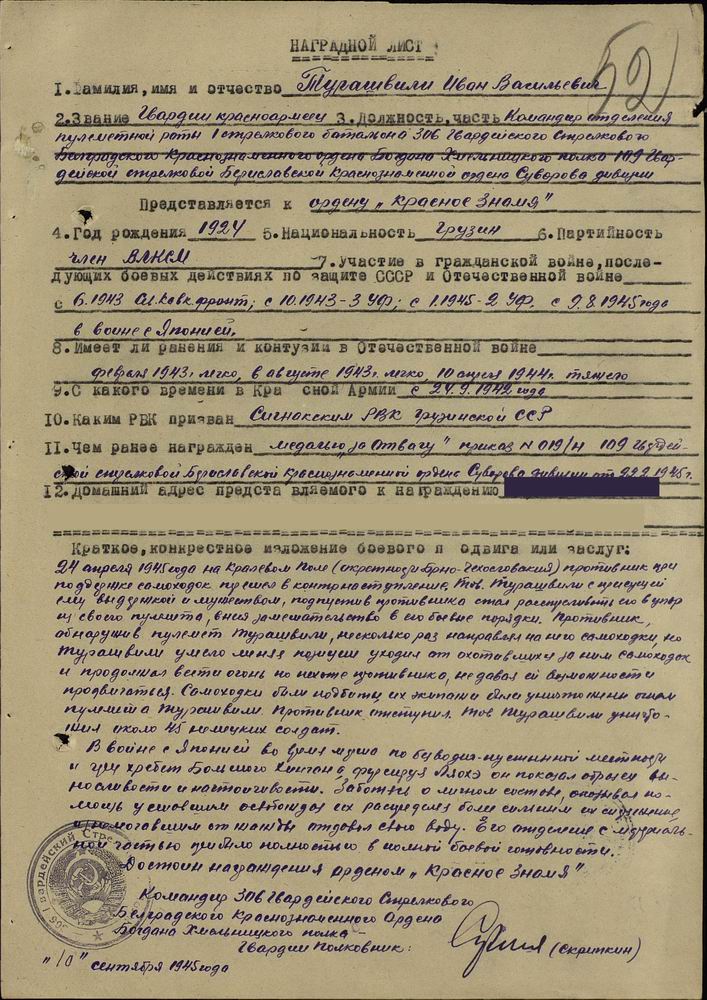 52
НАГРАДНОЙ ЛИСТ
1.Фамилия,имя и отчество Турашвили Иван Васильевич
2.Звание Гвардии красноармеец 3.Должность,часть Командир отделения
пулеметной роты 1 стрелкового батальона 306 Гвардейского Стрелкового
Белградского Краснознаменного ордена Богдана Хмельницкого полка 109 Гвар-
дейской стрелковой Бериславской Краснознаменной ордена Суворова дивизии
Представляется к ордену „Красное Знамя"
4.Год рождения 1924 5.Национальность грузин 6.Партийность
член ВЛКСМ 7.Участие в гражданской войне,после-
дующих боевых действиях по защите СССР и Отечественной войне
с 6.1943 Сев.Кавк.фронт; с 10.1943-3 УФ; с 1.1945-2 УФ. с 9.8.1945 года
в войне с Японией.
8.Имеет ли ранения и контузии в Отечественной войне
февраля 1943г. легко, в августе 1943г. легко, 10 апреля 1944г. тяжело
9.С какого времени в Кра сной Армии с 24.9.1942 года
10.Каким РВК призван Сигнакским РВК Грузинской ССР
11.Чем ранее награжден медалью „за Отвагу" приказ N 019/н 109 Гвардей-
ской стрелковой Бериславской Краснознаменной ордена Суворова дивизии от 22.2.1945г.
12.Домашний адрес предста вляемого к награждению
Краткое,конкрестное изложение боевого п одвига или заслуг:
24 апреля 1945 года на Кралевом Поле (окрестности Брно-Чехословакия) противник при
поддержке самоходок перешел в контрнаступление. Тов. Турашвили с присущей
ему выдержкой и мужеством, подпустив противника стал расстреливать его в упор
из своего пулемета, внеся замешательство в его боевые порядки. Противник,
обнаружив пулемет Турашвили, несколько раз направлял на него самоходки, но
Турашвили умело меняя позиции уходил от охотившихся за ним самоходок
и продолжал вести огонь по пехоте противника, не давая ей возможности
продвигаться. Самоходки были подбиты, их экипажи были уничтожены огнем
пулемета Турашвили. Противник отступил. Тов Турашвили уничто-
жил около 45 немецких солдат.
В войне с Японией во время марша по безводно-пустынной местности
и через хребет Большого Хингана, форсируя Ляохэ он показал образцы вы-
носливости и настойчивости. Заботясь о личном составе, оказывал по-
мощь уставшим освобождая их распределял более сильным их снаряжение,
изнемогавшим от жажды отдавал свою воду. Его отделение с материаль-
ной частью прибыло полностью в полной боевой готовности.
Достоин награждения орденом „Красное Знамя"
Командир 306 Гвардейского Стрелкового
Белградского Краснознаменного Ордена
Богдана Хмельницкого полка
Гвардии Полковник: (Скрипкин)
„10" сентября 1945 года